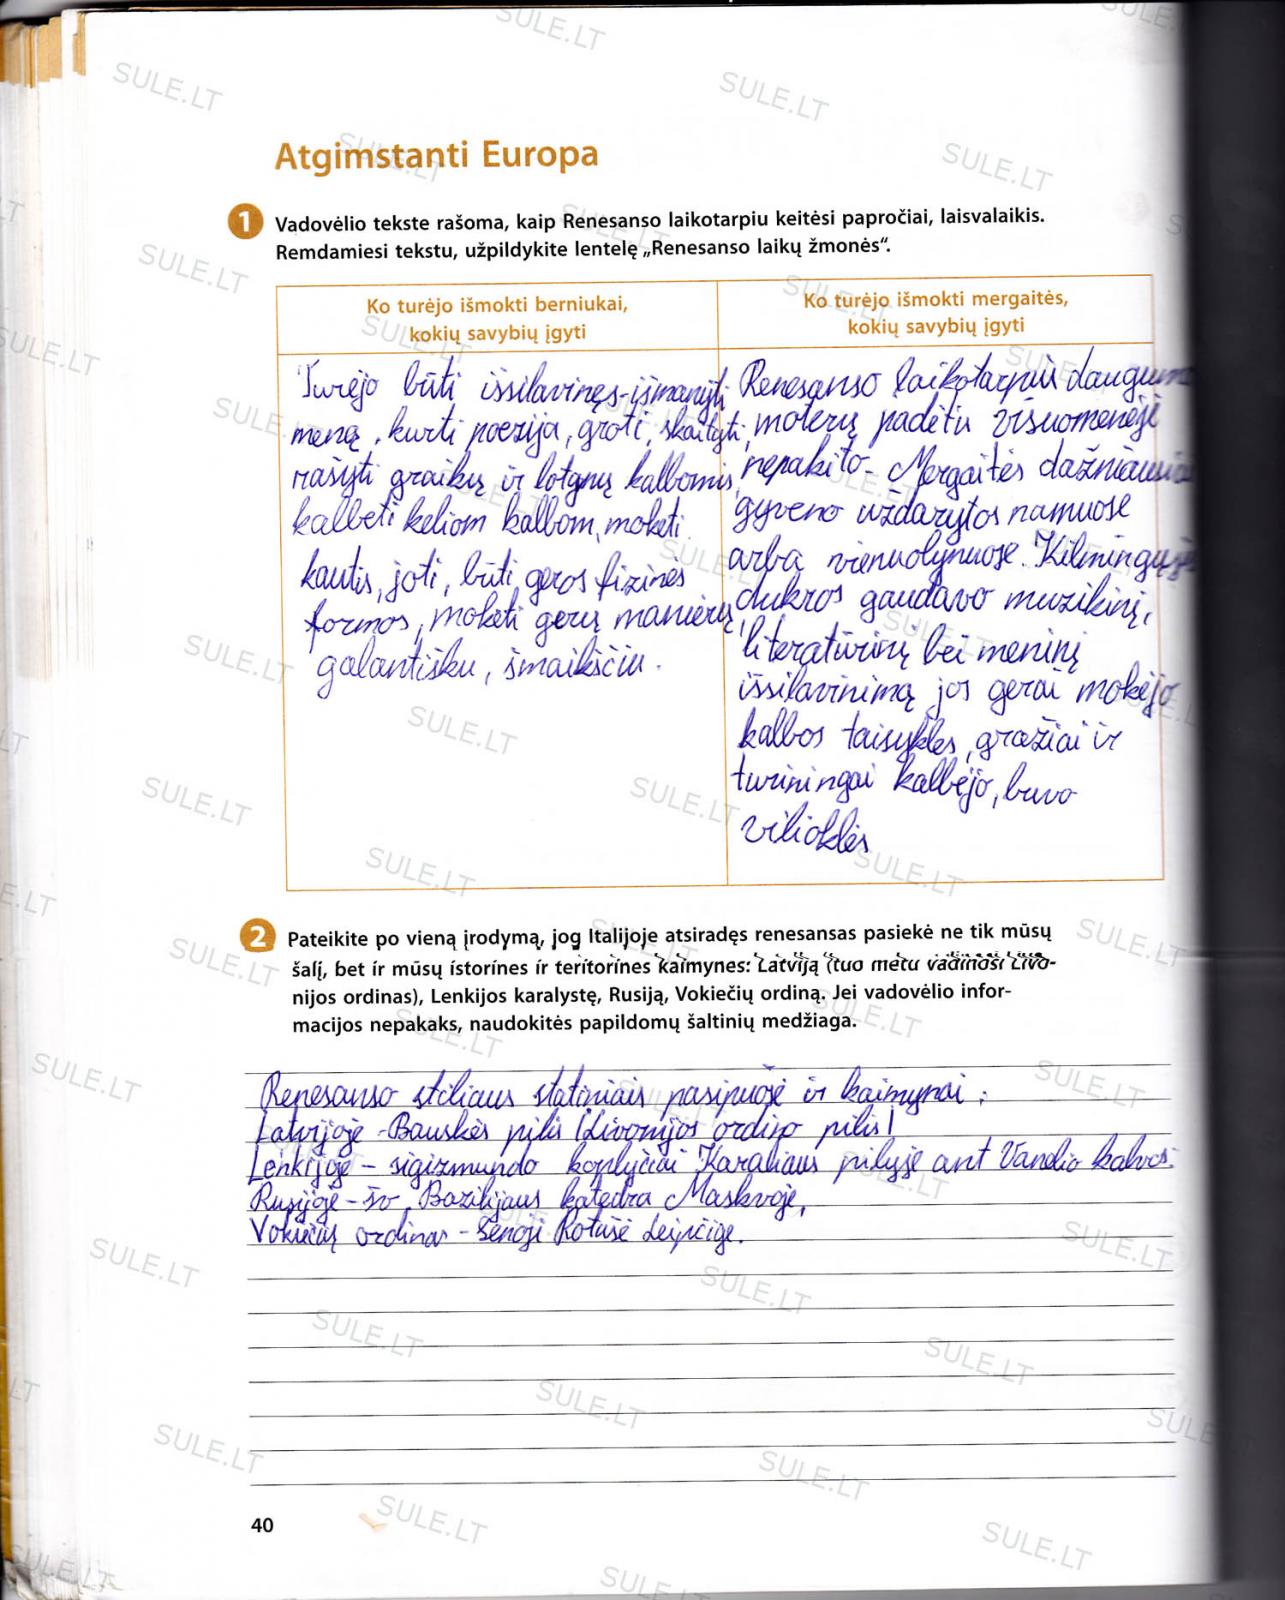 Atgimstanti Europa
1 Vadovėlio tekste rašoma, kaip Renesanso laikotarpiu keitėsi papročiai, laisvalaikis.
Remdamiesi tekstu, užpildykite lentelę „Renesanso laikų žmonės“.
Ko turėjo išmokti berniukai,
kokių savybių įgyti
Turėjo būti išsilavinęs-išmanyti
meną, kurti poezija, groti, skaityti,
rašyti graikų ir lotynų kalbomis,
kalbėti keliom kalbom, mokėti
kautis, joti, būti geros fizinės
formos, mokėti gerų manierų,
galantišku, šmaikščiu.
Ko turėjo išmokti mergaitės,
kokių savybių įgyti
Renesanso laikotarpiu dauguma
moterų padėtu visuomenėje
nepakito. Mergaitės dažniausiai
gyveno uždarytos namuose
arba vienuolynuose. Kilmingųjų
dukros gaudavo muzikinį,
literatūrinį bei meninį
išsilavinimą jos gerai mokėjo
kalbos taisykles, gražiai ir
turiningai kalbėjo, buvo
vilioklės
2 Pateikite po vieną įrodymą, jog Italijoje atsiradęs renesansas pasiekė ne tik mūsų
šalį, bet ir mūsų istorines ir teritorines kaimynes: Latviją (tuo metu vadinosi Livo-
nijos ordinas), Lenkijos karalystę, Rusiją, Vokiečių ordiną. Jei vadovėlio infor-
macijos nepakaks, naudokitės papildomų šaltinių medžiaga.
Renesanso stiliaus statiniais pasipuošė ir kaimynai:
Latvijoje - Bauskės pilis (Livonijos ordino pilis)
Lenkijoje - sigizmundo koplyčiai Karaliaus pilyje ant Vandio kalvos.
Rusijoje - šv. Bazilijaus katedra Maskvoje,
Vokiečių ordinas - Senoji Rotušė Leipcige.
40
SULE.LT